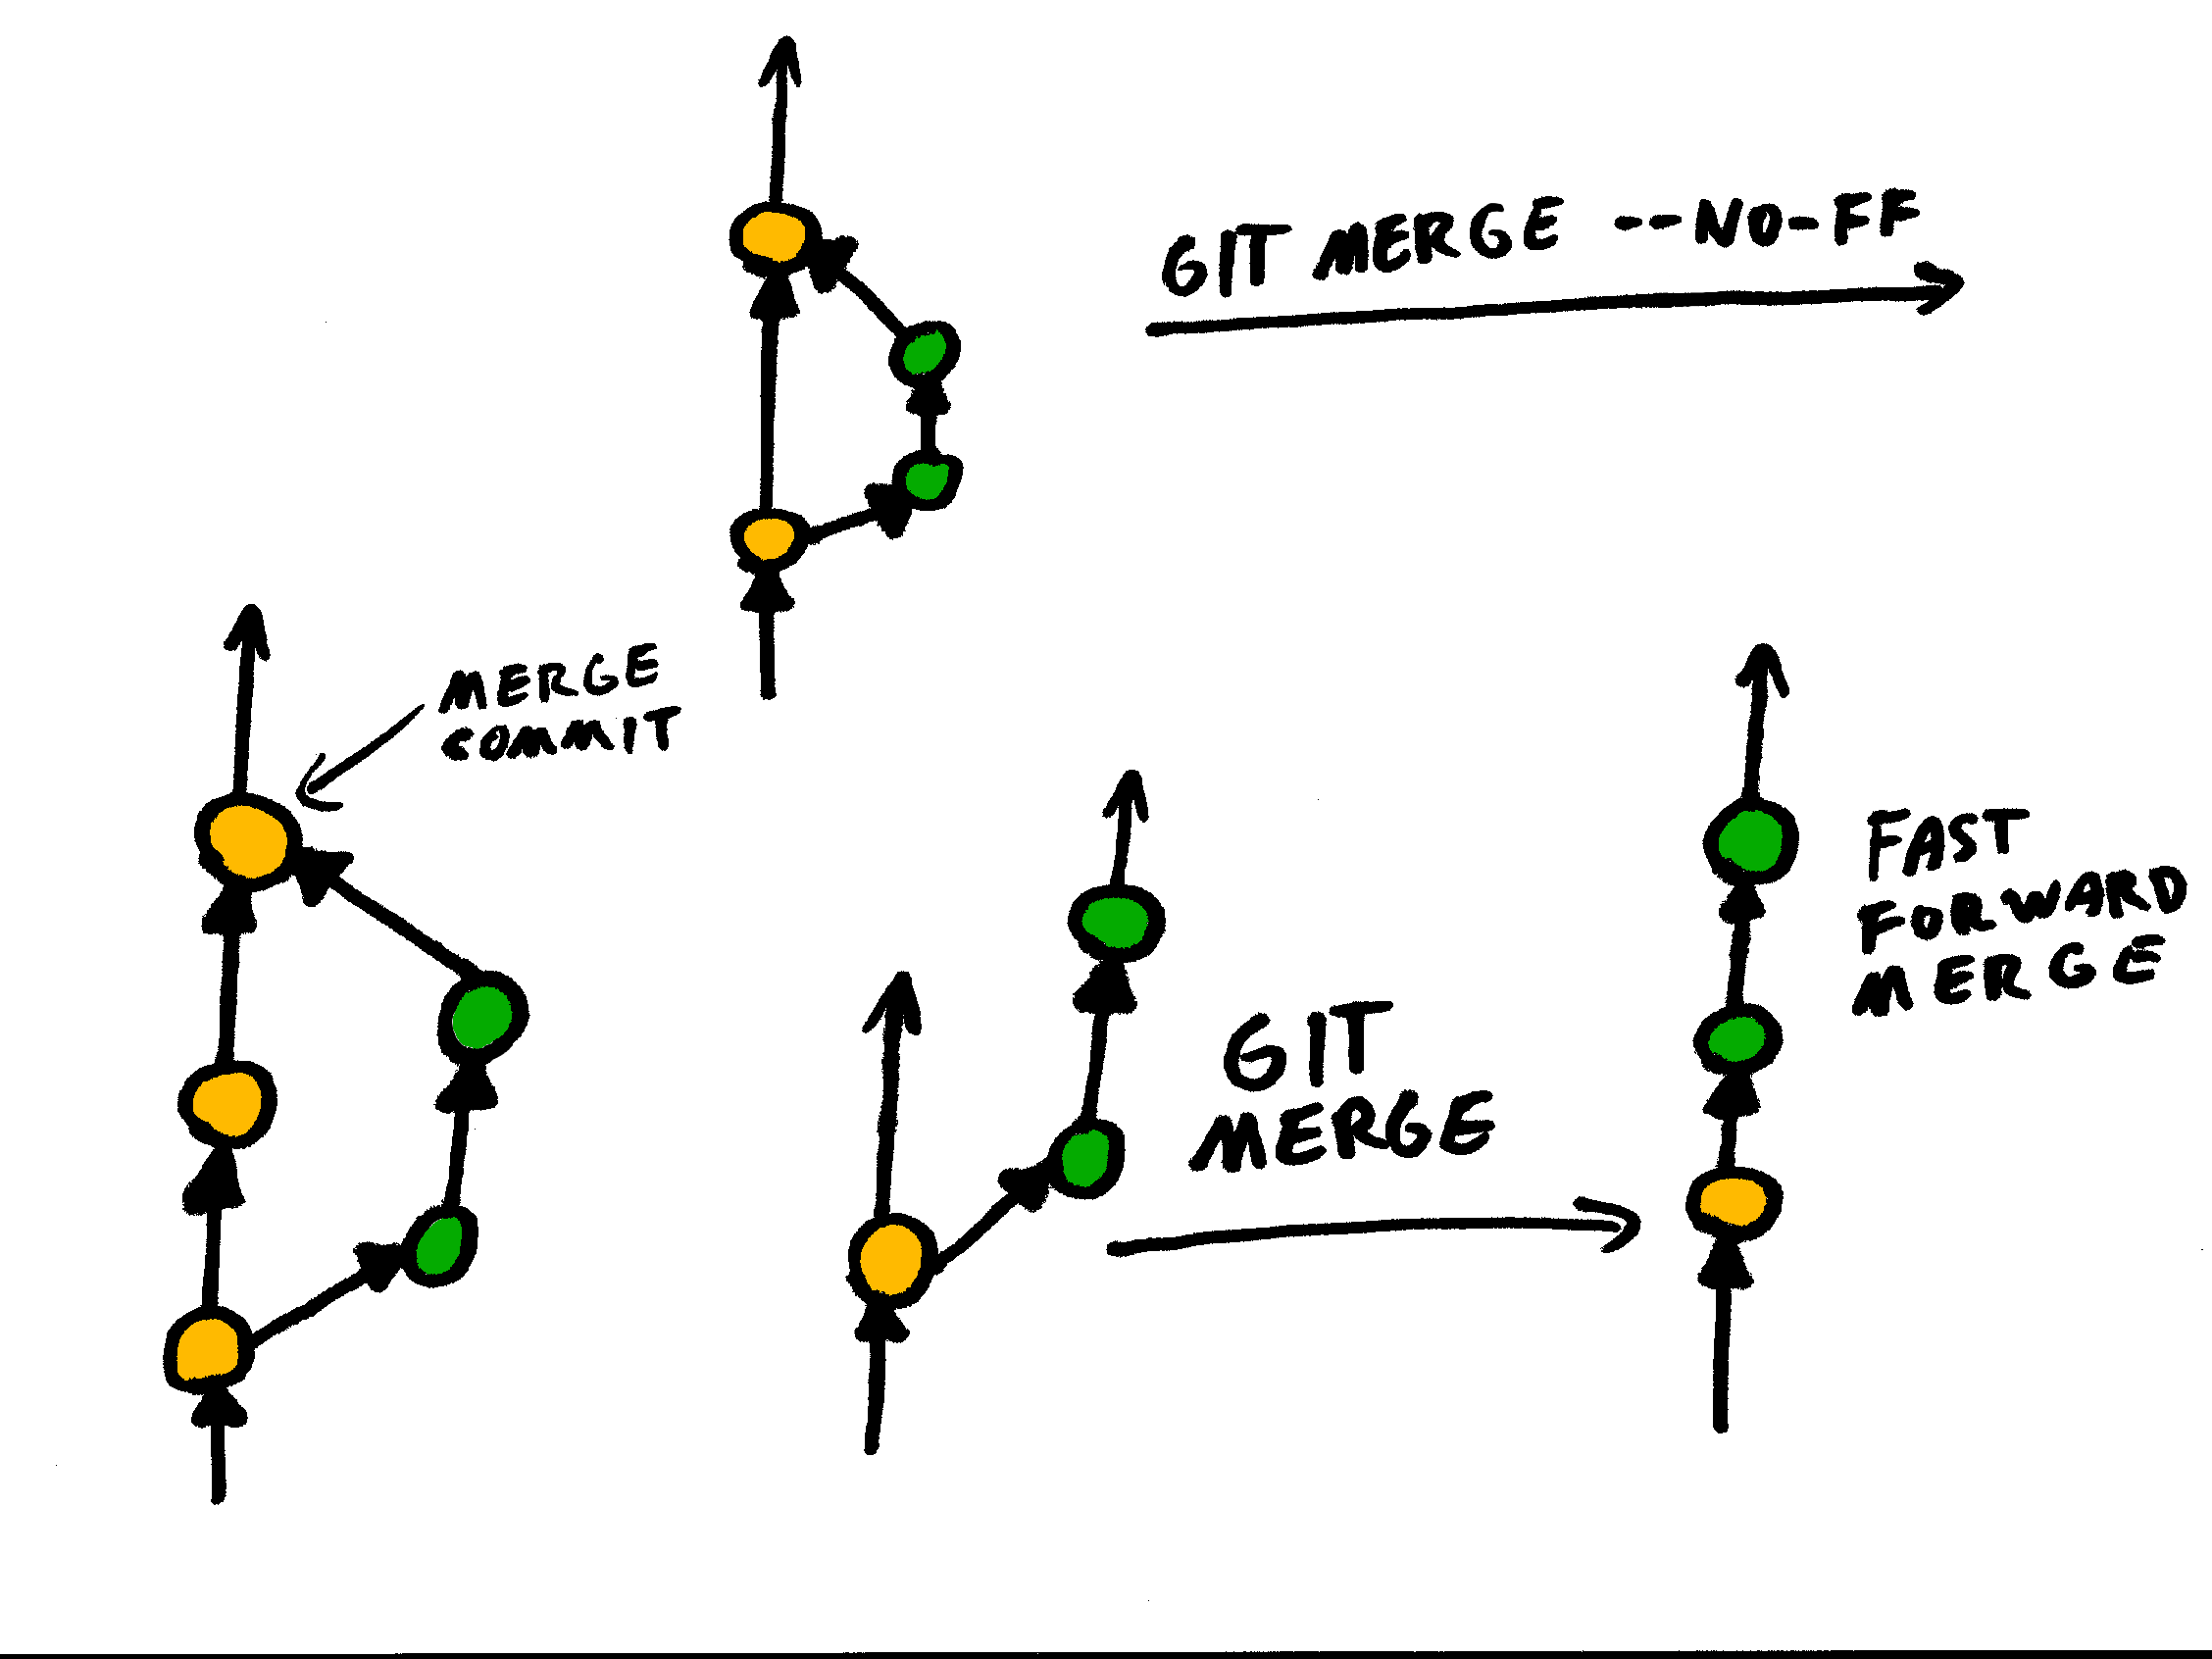 GIT MERGE --NO-FF
MERGE
COMMIT
GIT
MERGE
FAST
FORWARD
MERGE